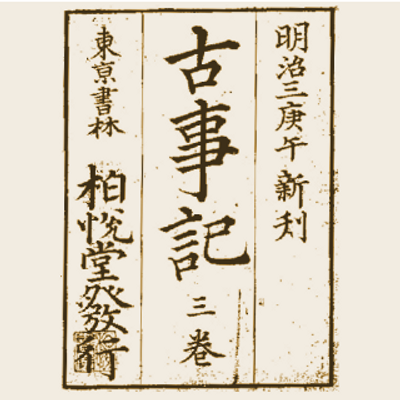 明治三庚午新刻
古事記三巻
東京書林
柏悅堂發行